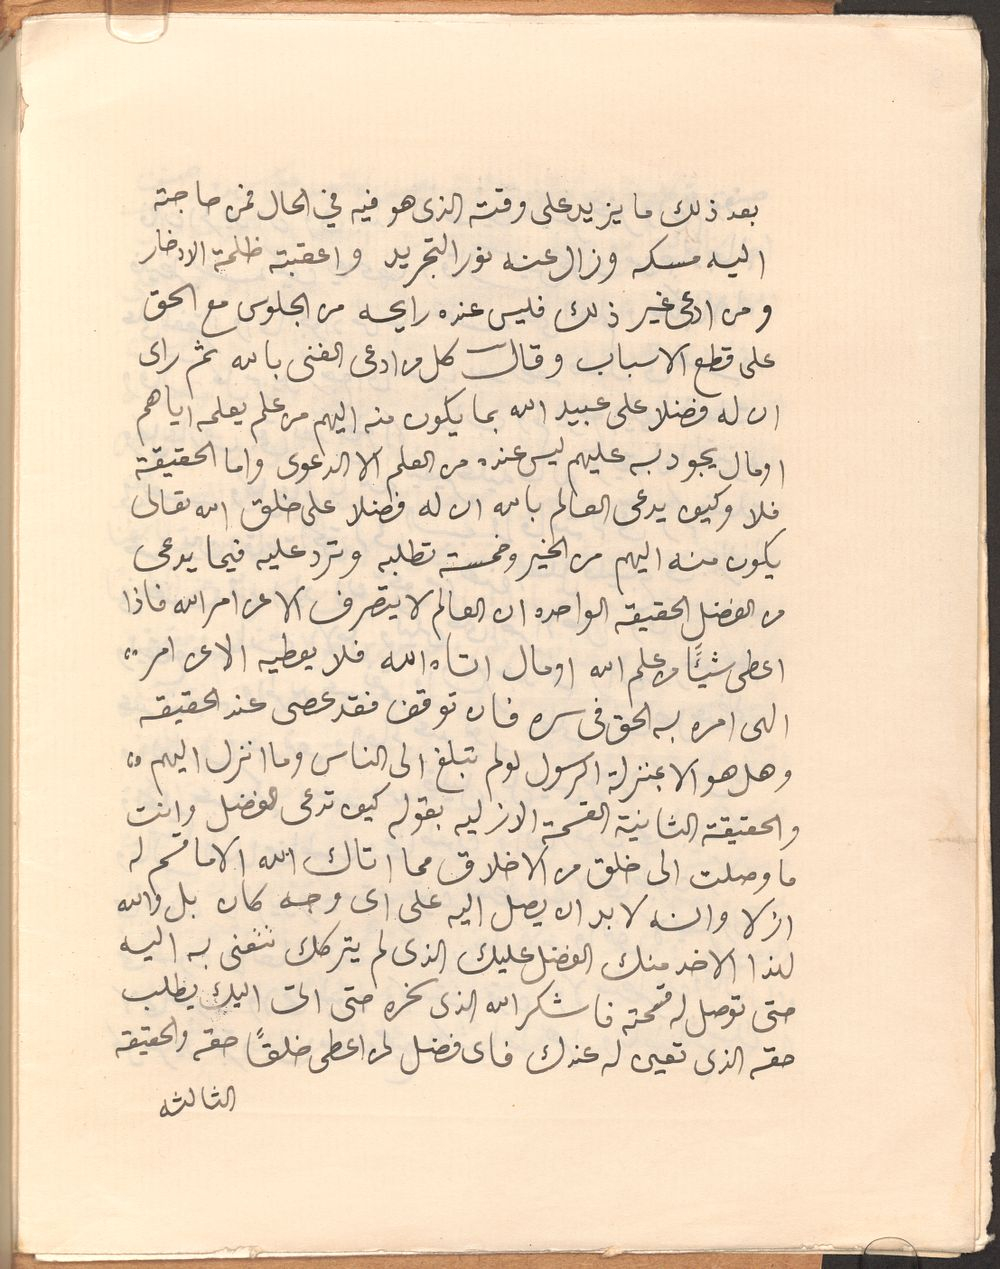 بعد ذلك ما يزيد على وقته الذى هو فيه في الحال فمن حاجته
اليه مسكه وزال عنه نور التجريد واعقبته ظلمة الادخار
ومن ادعى غير ذلك فليس عنده رايحه من الجلوس مع الحق
على قطع الاسباب وقال كل من ادعى الغنى بالله ثم راى
ان له فضلا على عبيد الله بما يكون منه اليهم من علم يعلمه اياهم
او مال يجود به عليهم ليس عنده من العلم الا الدعوى واما الحقيقة
فلا وكيف يدعى العالم بالله ان له فضلا على خلق الله تعالى
يكون منه اليهم من الخير وخمسة تطلبه وترد عليه فيما يدعى
من الفضل الحقيقه الواحده ان العالم لا يتصرف الا عن امر الله فاذا
اعطى شيئًا من علم الله او مال اتاه الله فلا يعطيه الا عن امر
الهى امره به الحق فى سره فان توقف فقد عصى عند الحقيقه
وهل هو الا بمنزلة الرسول لو لم تبلغ الى الناس وما انزل اليهم
والحقيقة الثانية القسمة الازليه بقوله كيف تدعى الفضل وانت
ما وصلت الى خلق من الاخلاق مما اتاك الله الا ما قسم له
ازلا وانه لا بد ان يصل اليه على اى وجه كان بل والله
لهذا الاخد منك الفضل عليك الذى لم يتركك تتغنى به اليه
حتى توصل له قسمته فاشكر الله الذى سخره حتى اتى اليك يطلب
حقه الذى تعين له عندك فاى فضل لمن اعطى خلقًا حقه والحقيقه
الثالثه